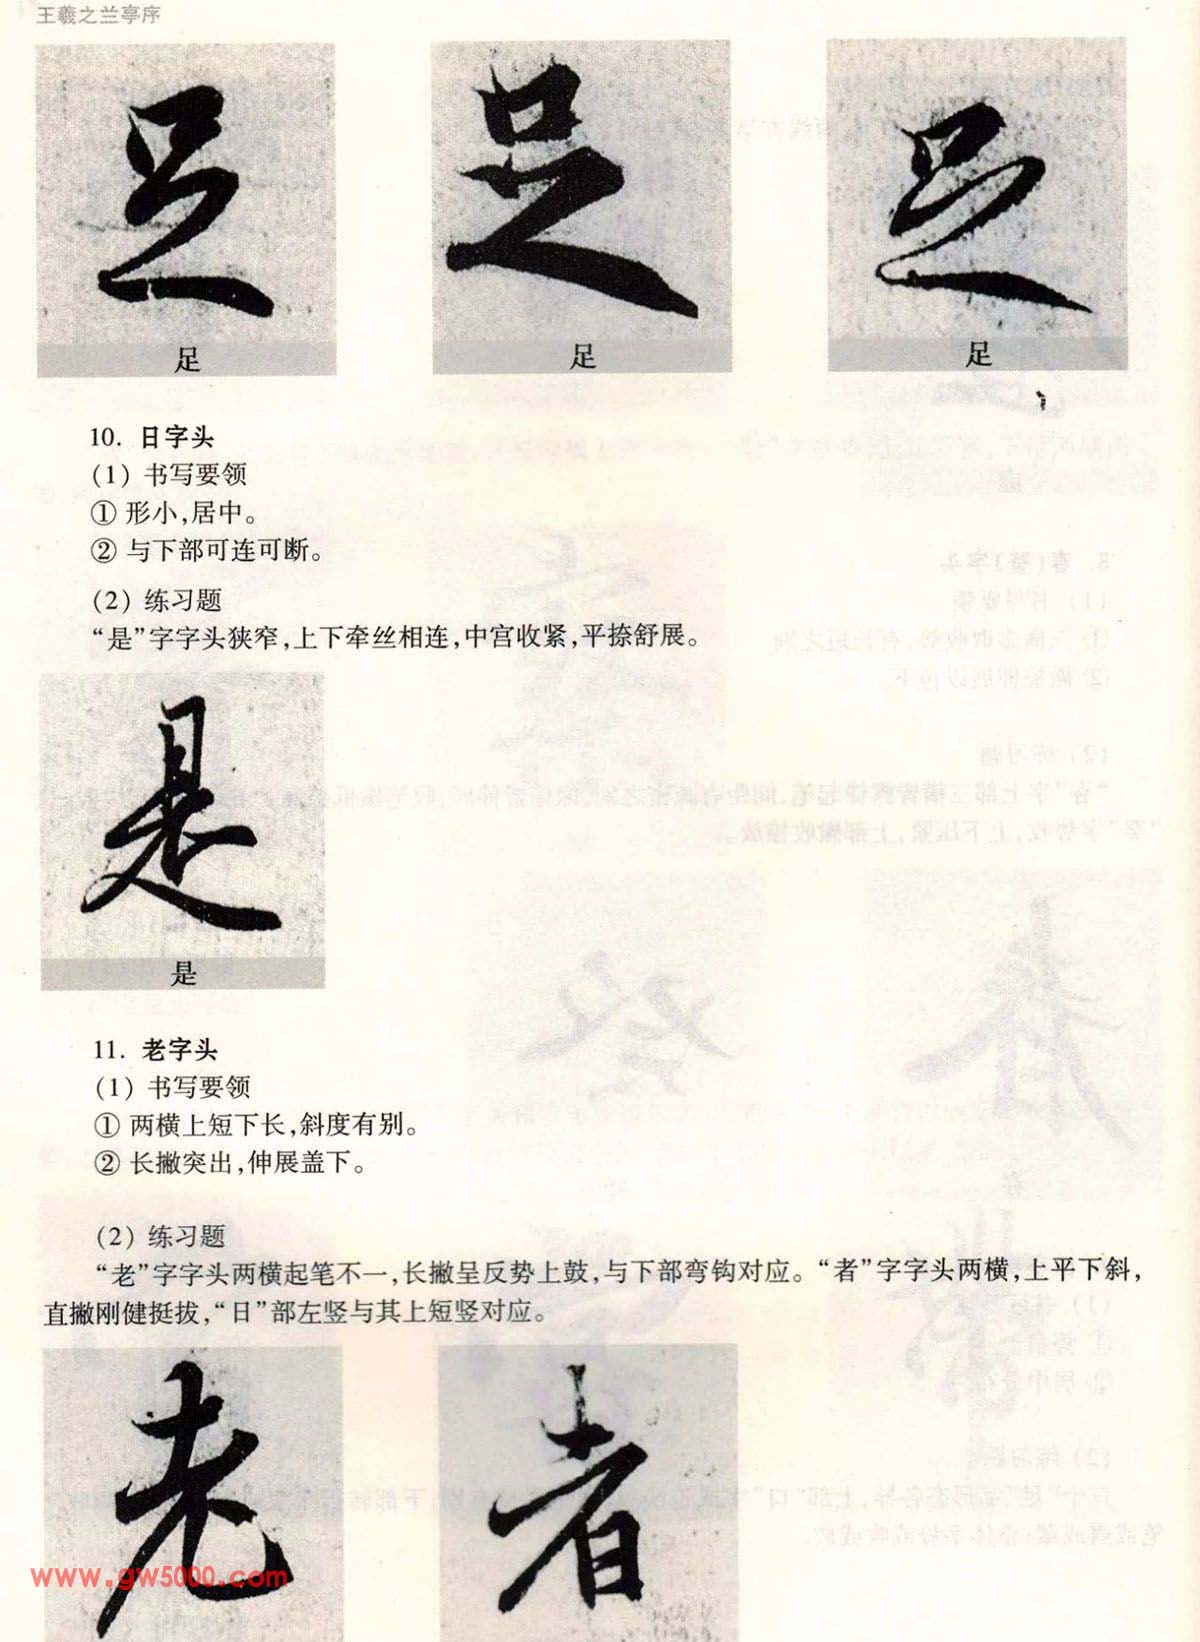 王羲之兰亭序
足 足 足
足 足 足
10. 日字头
(1) 书写要领
① 形小,居中。
② 与下部可连可断。
(2) 练习题
“是”字字头狭窄,上下牵丝相连,中宫收紧,平捺舒展。
是
是
11. 老字头
(1) 书写要领
① 两横上短下长,斜度有别。
② 长撇突出,伸展盖下。
(2) 练习题
“老”字字头两横起笔不一,长撇呈反势上鼓,与下部弯钩对应。“者”字字头两横,上平下斜,
直撇刚健挺拔,“日”部左竖与其上短竖对应。
老 者
www.gw5000.com